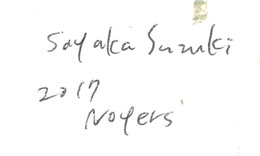 Sayaka Suzuki
2017
Noyers